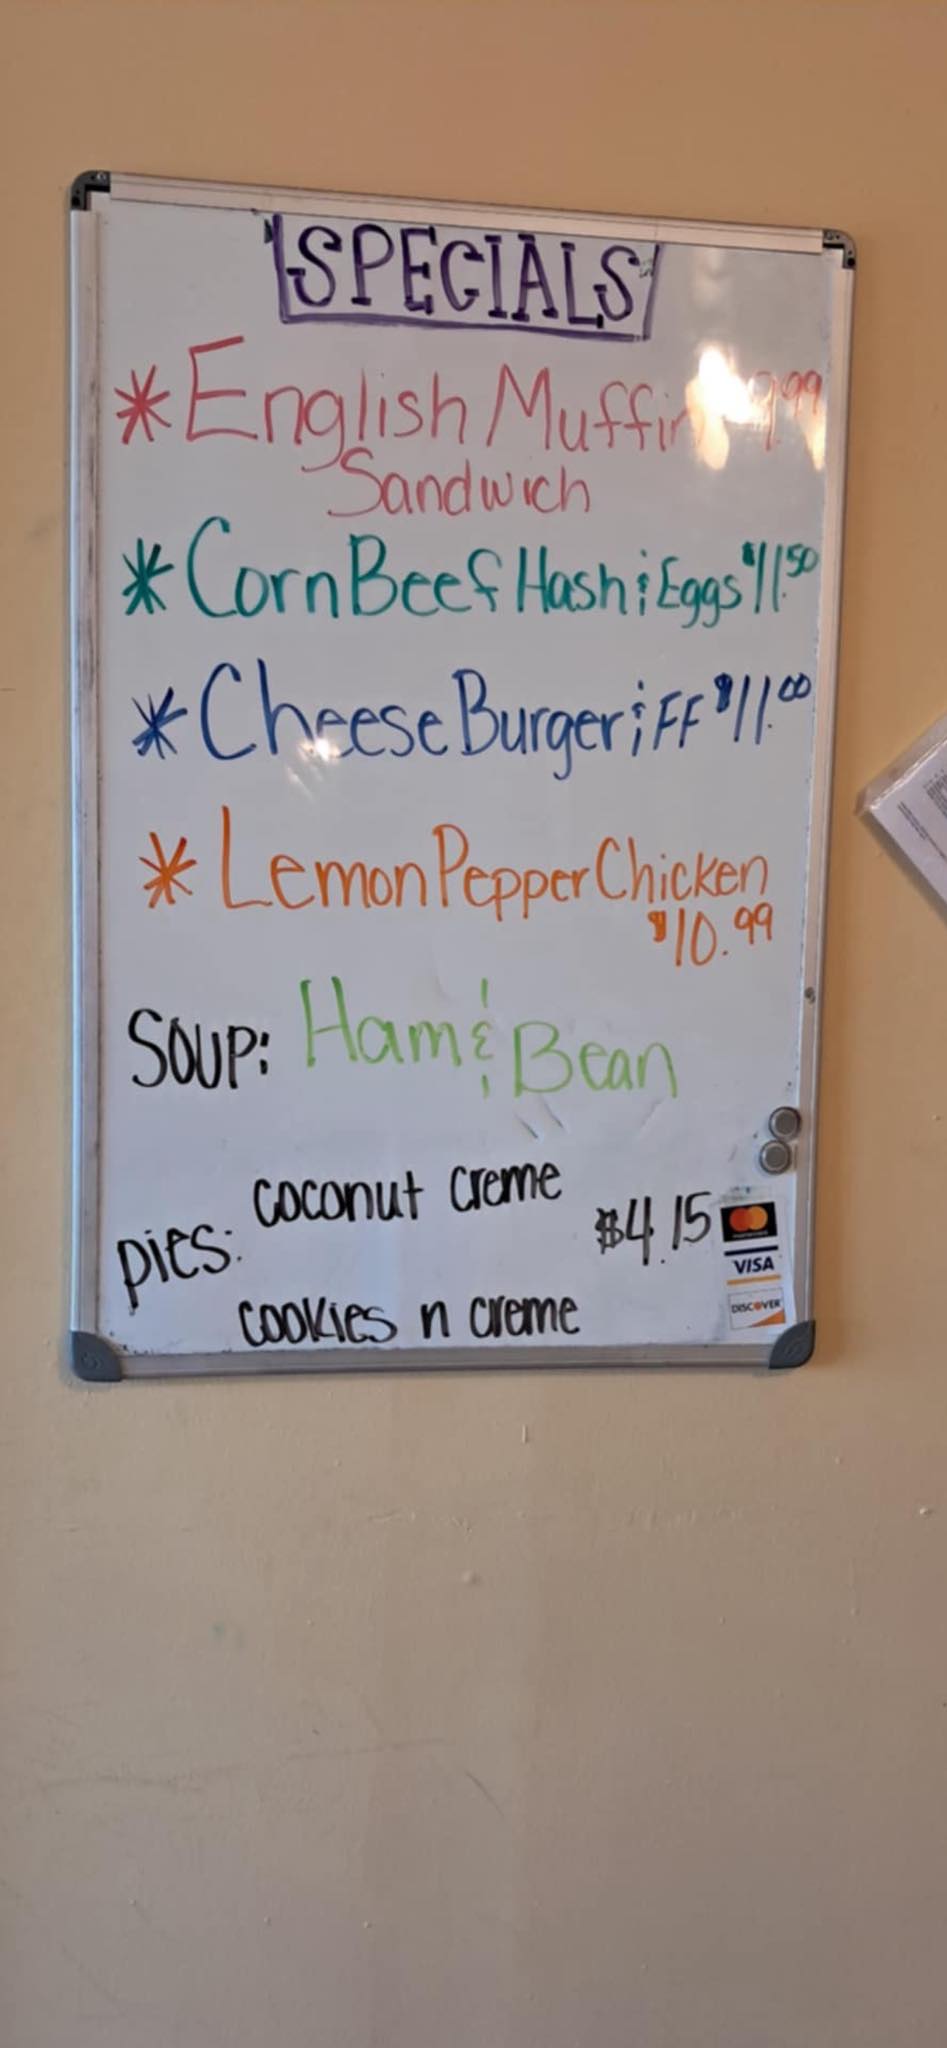 SPECIALS
* English Muffin 9.99
Sandwich
* Corn Beef Hash & Eggs $11.50
* Cheese Burger & FF $11.00
* Lemon Pepper Chicken
$10.99
SOUP: Ham & Bean
coconut creme
pies: $4.15
cookies n creme
VISA
DISCOVER